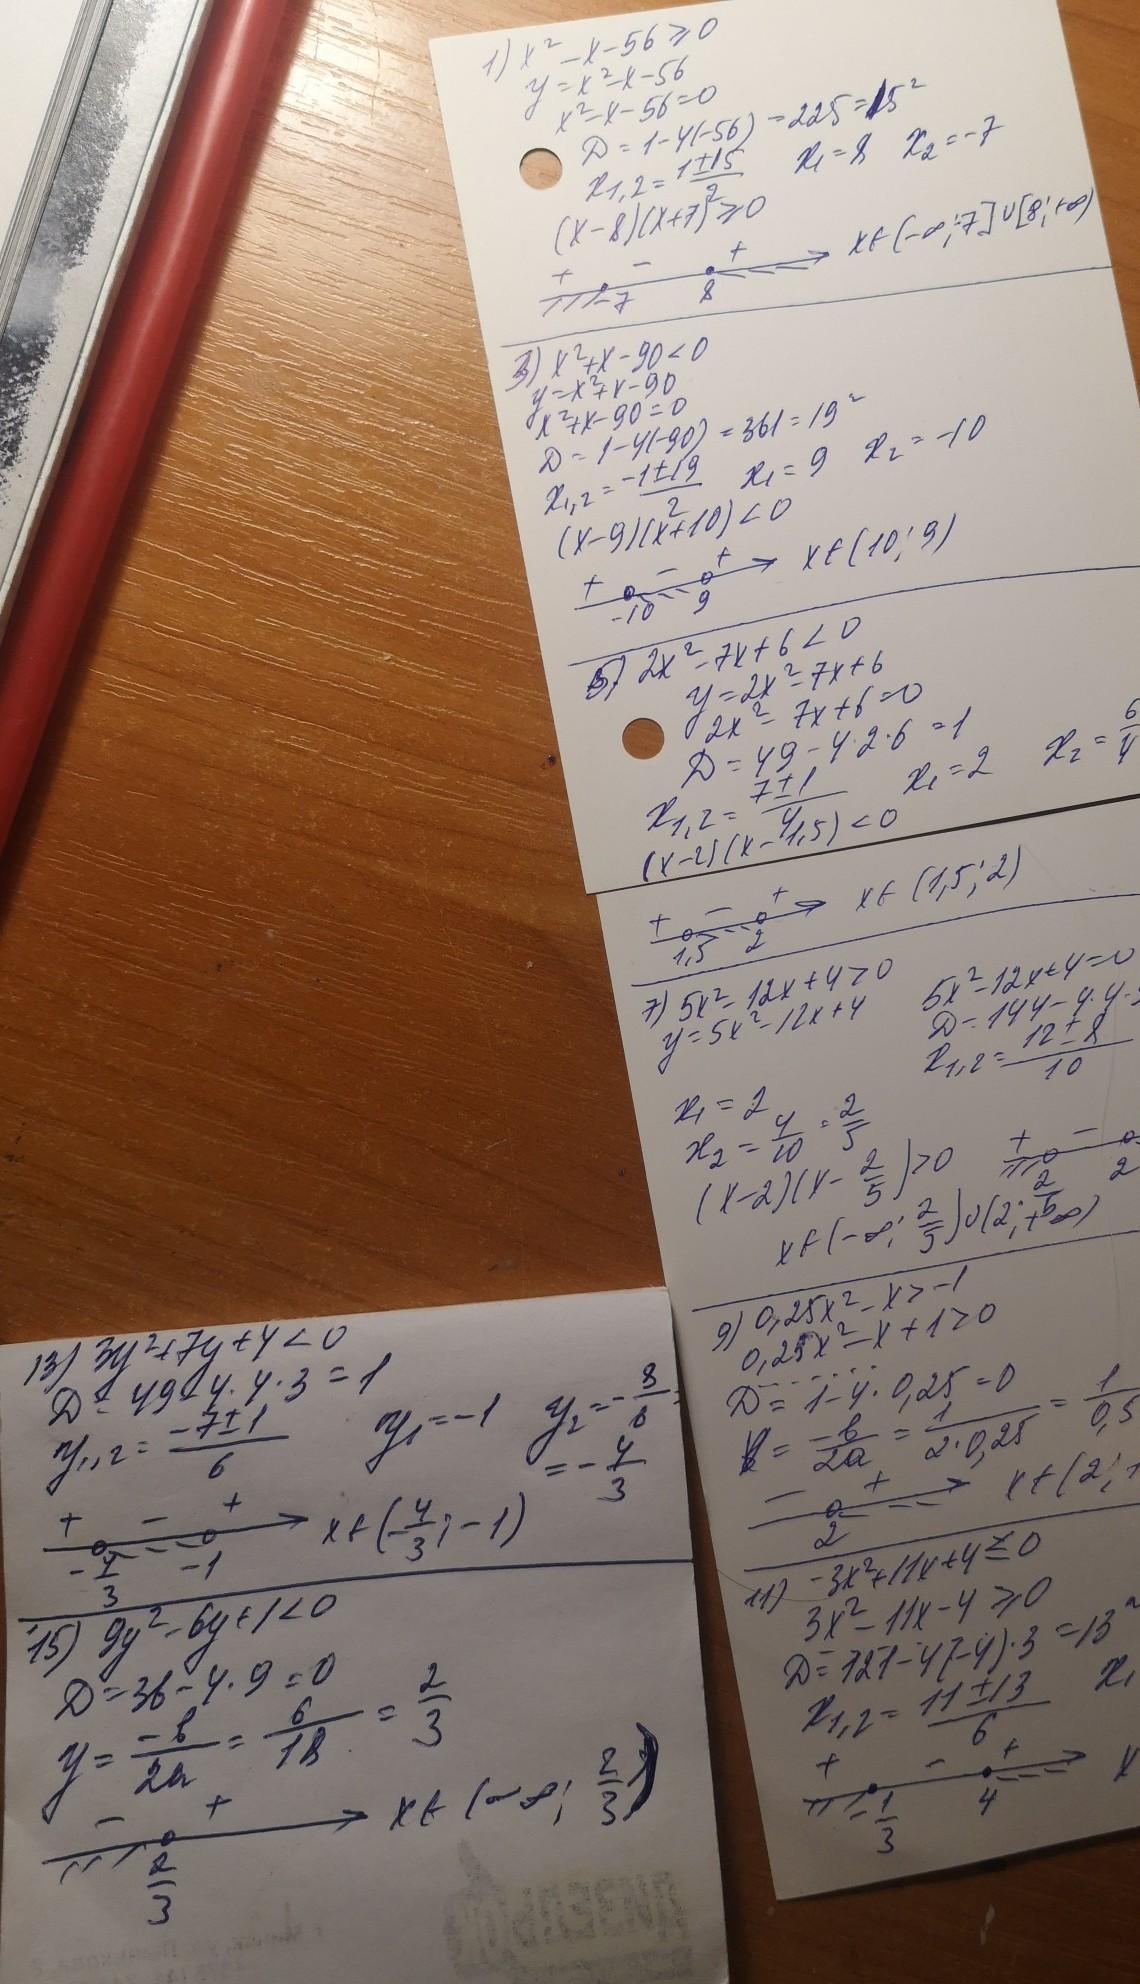 1) x² - x - 56 ⩾ 0
y = x² - x - 56
x² - x - 56 = 0
D = 1 - 4(-56) = 225 = 15²
x₁,₂ = (1 ± 15)/2 x₁ = 8 x₂ = -7
(x - 8)(x + 7) ⩾ 0
+ - + x ∈ (-∞; -7] ∪ [8; +∞)
-7 8
3) x² + x - 90 < 0
y = x² + x - 90
x² + x - 90 = 0
D = 1 - 4(-90) = 361 = 19²
x₁,₂ = (-1 ± 19)/2 x₁ = 9 x₂ = -10
(x - 9)(x + 10) < 0
+ - + x ∈ (10; 9)
-10 9
5) 2x² - 7x + 6 < 0
y = 2x² - 7x + 6
2x² - 7x + 6 = 0
D = 49 - 4·2·6 = 1
x₁,₂ = (7 ± 1)/4 x₁ = 2 x₂ = 6/4
(x - 2)(x - 1,5) < 0
+ - + x ∈ (1,5; 2)
1,5 2
7) 5x² - 12x + 4 > 0 5x² - 12x + 4 = 0
y = 5x² - 12x + 4 D = 144 - 4·4·
x₁,₂ = (12 ± 8)/10
x₁ = 2
x₂ = 4/10 = 2/5
(x - 2)(x - 2/5) > 0 + -
2/5 2
x ∈ (-∞; 2/5) ∪ (2; +∞)
9) 0,25x² - x > -1
0,25x² - x + 1 > 0
D = 1 - 4·0,25 = 0
x = -b/2a = 1/(2·0,25) = 1/0,5
- + x ∈ (2;
2
11) -3x² + 11x + 4 ⩽ 0
3x² - 11x - 4 ⩾ 0
D = 121 - 4(-4)·3 = 13²
x₁,₂ = (11 ± 13)/6 x₁
+ - + x
-1/3 4
13) 3y² + 7y + 4 < 0
D = 49 - 4·4·3 = 1
y₁,₂ = (-7 ± 1)/6 y₁ = -1 y₂ = -8/6 =
= -4/3
+ - + x ∈ (-4/3; -1)
-4/3 -1
15) 9y² - 6y + 1 < 0
D = 36 - 4·9 = 0
y = -b/2a = 6/18 = 2/3
- + x ∈ (-∞; 2/3)
2/3